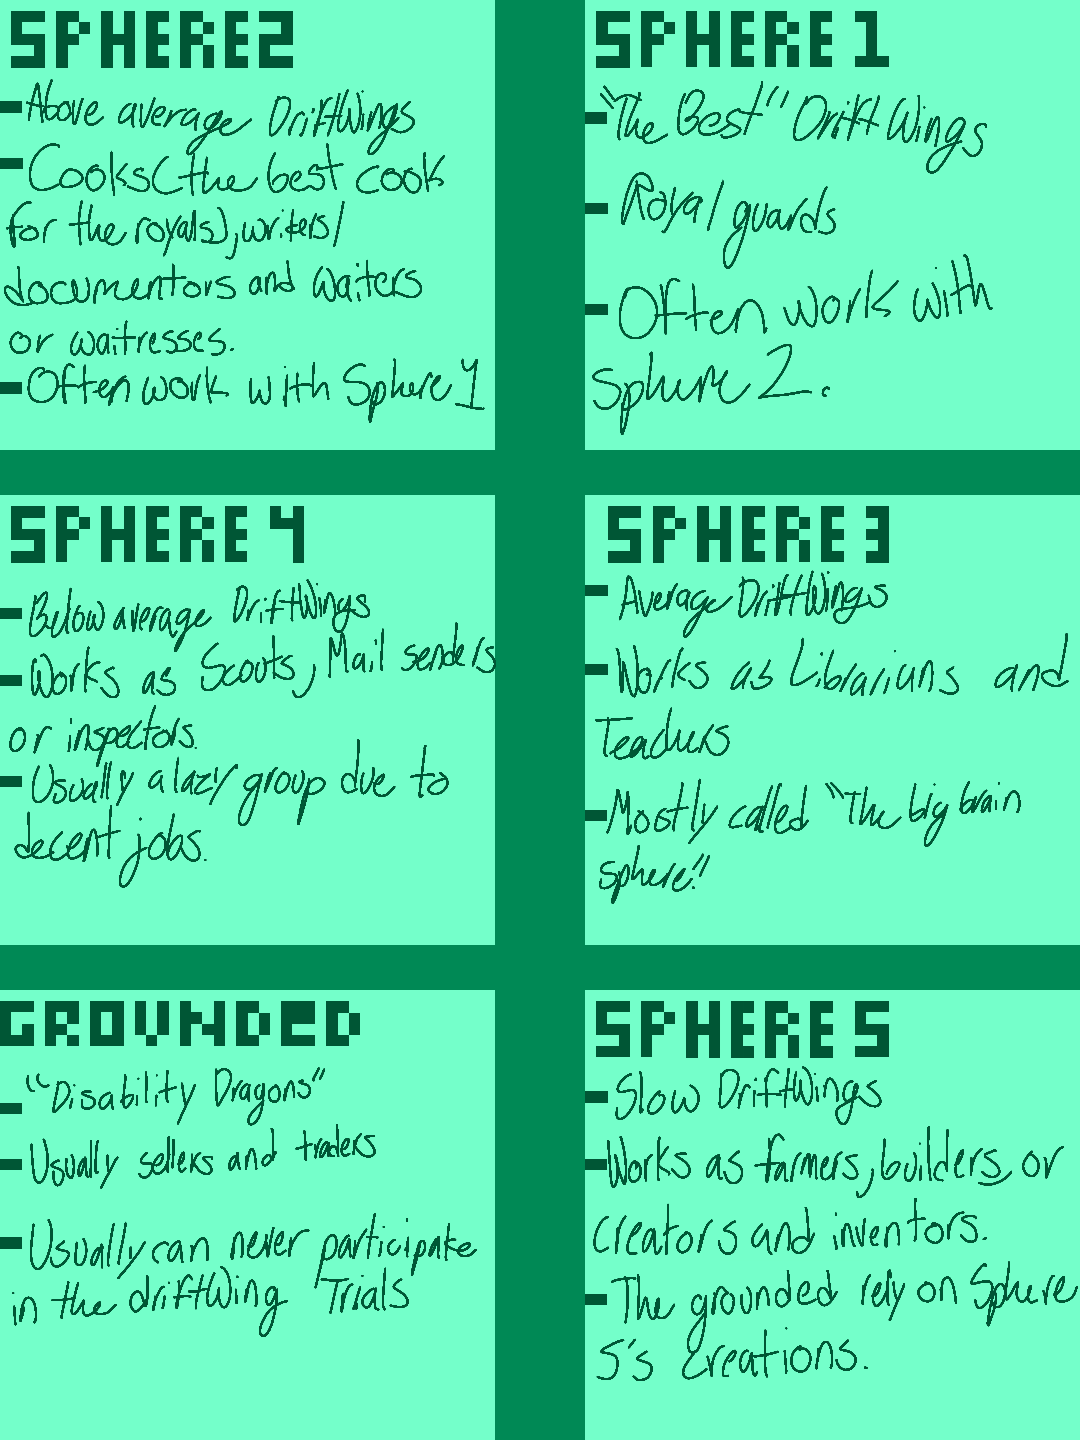 SPHERE2
-Above average DriftWings
-Cooks(the best cook
for the royals), writers/
documentors and waiters
or waitresses.
-Often work with Sphere 1
SPHERE 1
-"The Best" DriftWings
-Royal guards
-Often work with
Sphere 2.
SPHERE 4
-Below average DriftWings
-Works as Scouts, Mail senders
or inspectors.
-Usually a lazy group due to
decent jobs.
SPHERE 3
-Average DriftWings
-Works as Librarians and
Teachers
-Mostly called "The big brain
sphere!"
GROUNDED
-"Disability Dragons"
-Usually sellers and traders
-Usually can never participate
in the driftWing Trials
SPHERE 5
-Slow DriftWings
-Works as farmers, builders or
creators and inventors.
-The grounded rely on Sphere
5's creations.